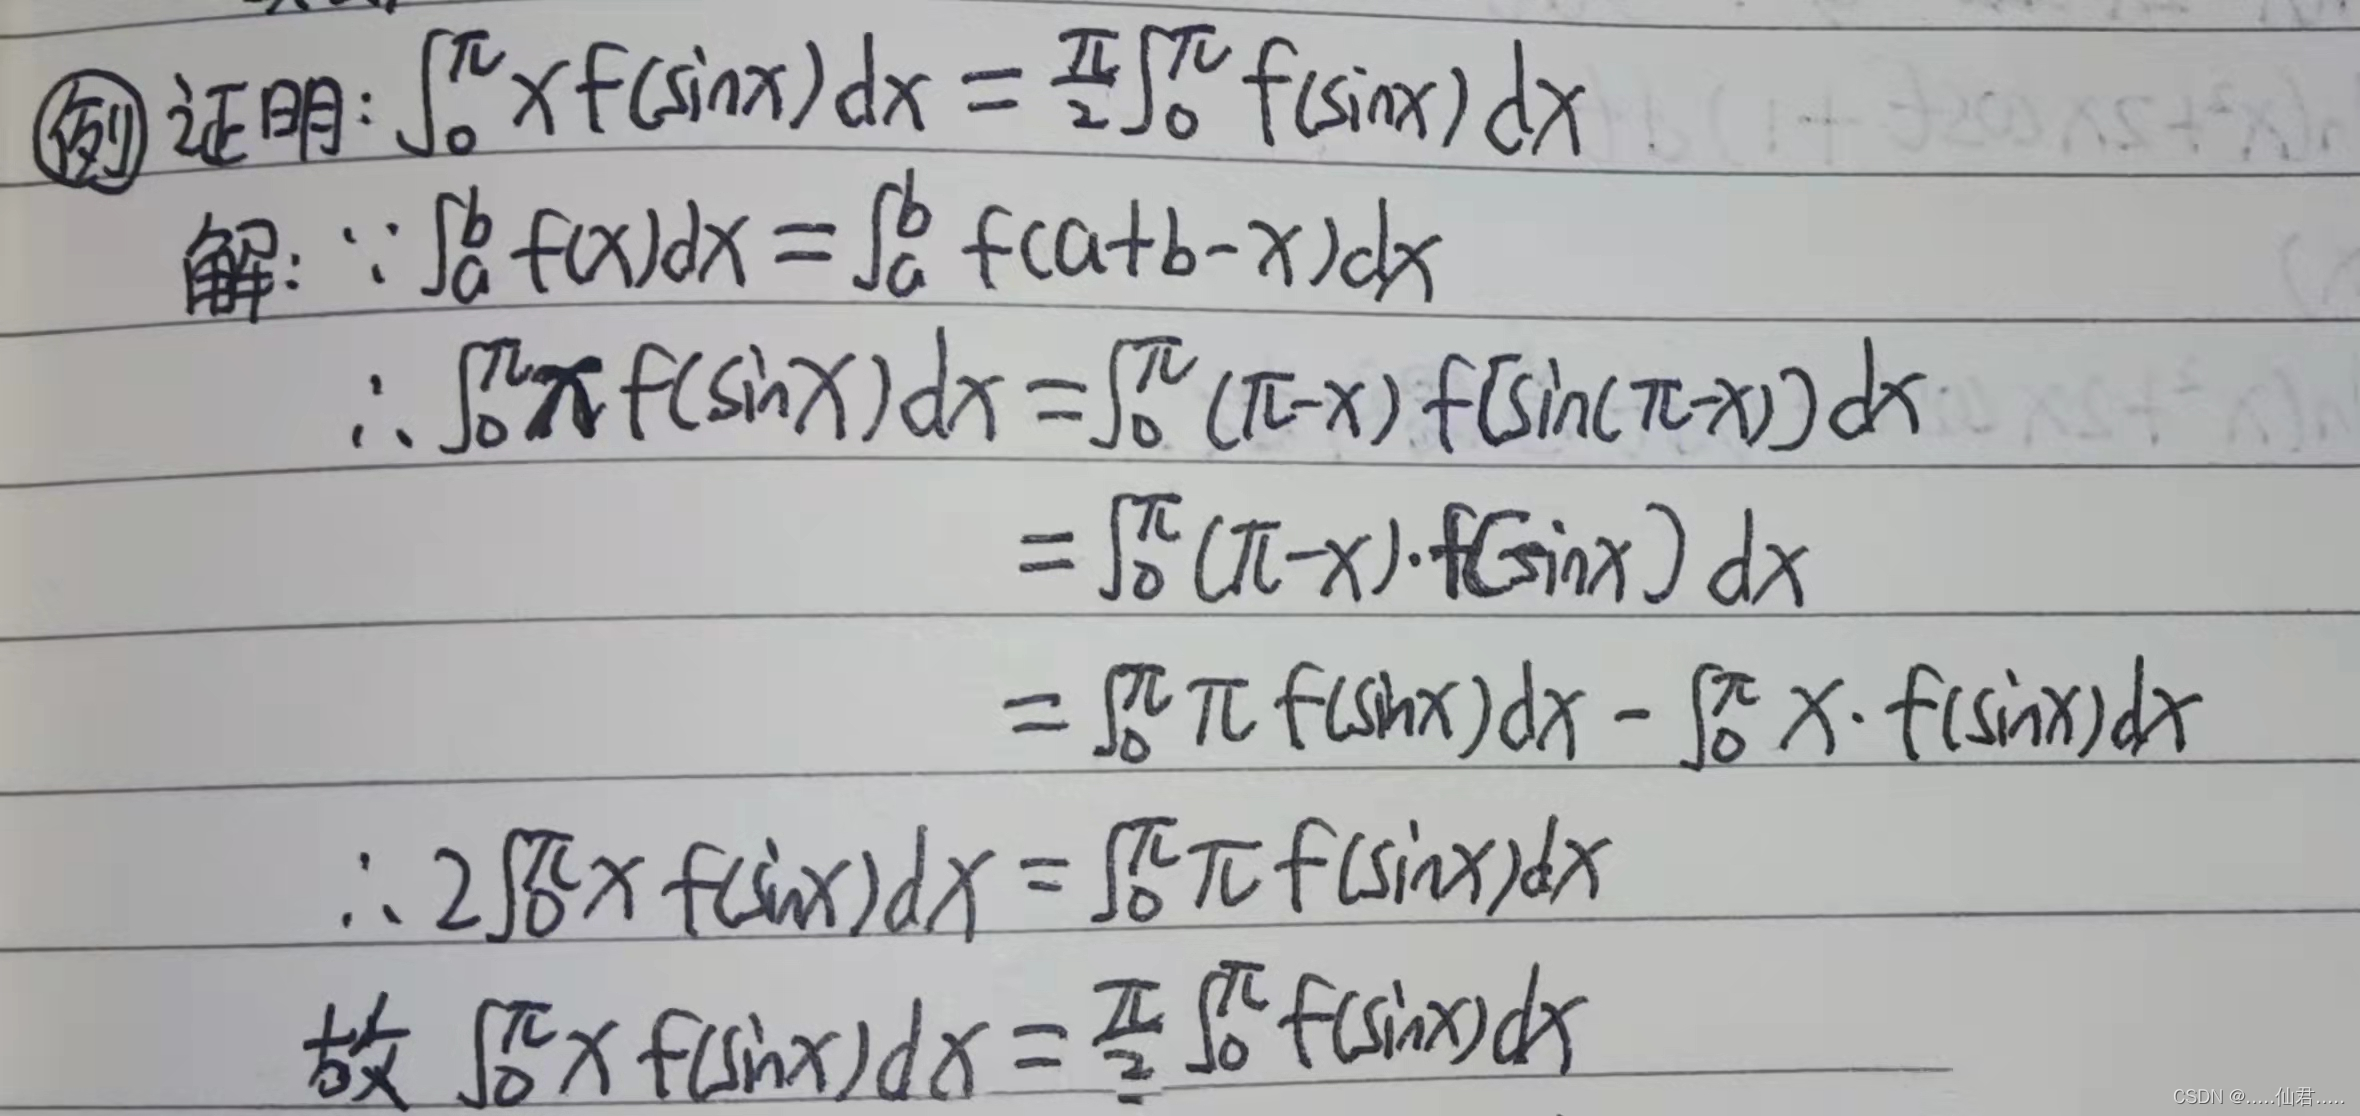 例 证明: ∫₀^π x f(sinx) dx = π/2 ∫₀^π f(sinx) dx
解: ∵ ∫ₐ^b f(x)dx = ∫ₐ^b f(a+b-x)dx
∴ ∫₀^π x f(sinx) dx = ∫₀^π (π-x) f[sin(π-x)] dx
= ∫₀^π (π-x)·f[sinx] dx
= ∫₀^π π f(sinx)dx - ∫₀^π x·f(sinx)dx
∴ 2∫₀^π x f(sinx)dx = ∫₀^π π f(sinx)dx
故 ∫₀^π x f(sinx)dx = π/2 ∫₀^π f(sinx)dx
CSDN @.....仙君.....